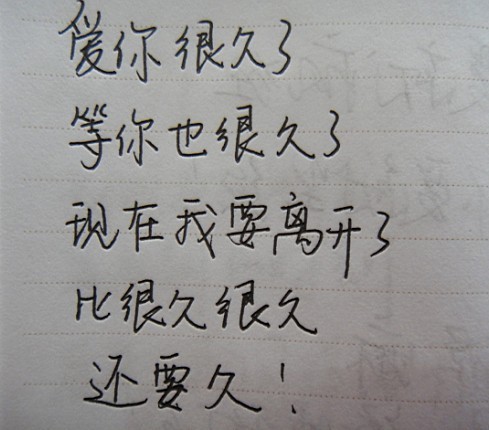 爱你很久了
等你也很久了
现在我要离开了
比很久很久
还要久！